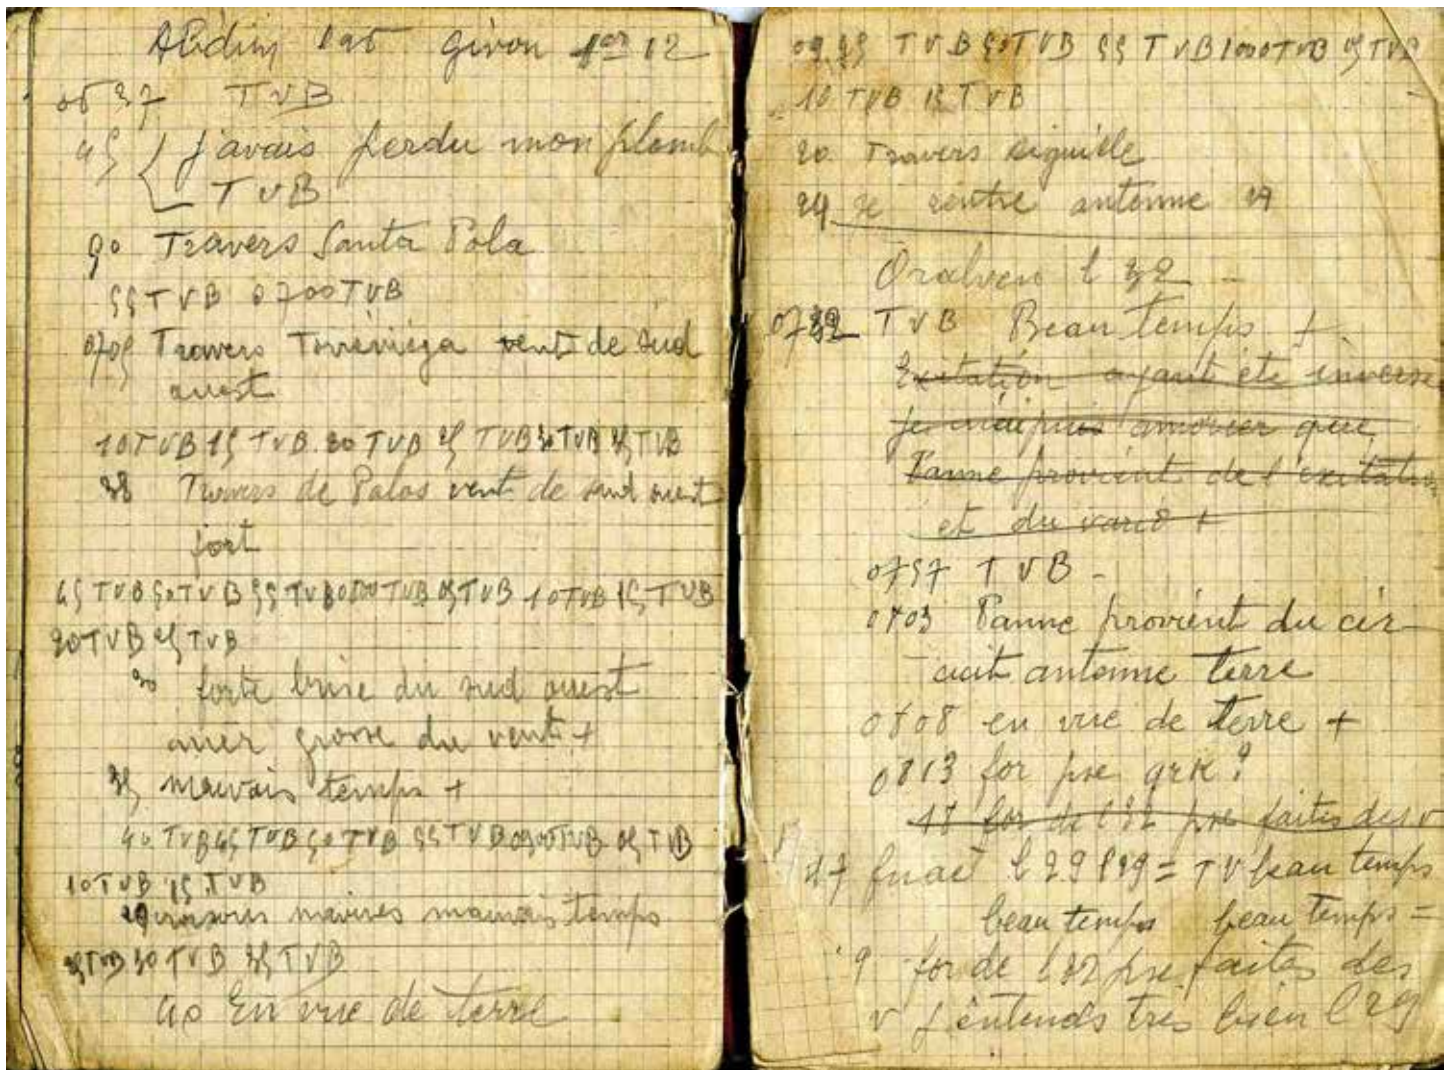 givon 1er 12
0637 TVB
45 j'avais perdu mon plomb
TVB
50 Travers Santa Pola
55 TVB 0700 TVB
0705 Travers vent de sud
ouest
10 TVB 15 TVB 20 TVB 25 TVB 30 TVB 35 TVB
38 Travers de Palos vent de sud ouest
fort
45 TVB 50 TVB 55 TVB 0800 TVB 05 TVB 10 TVB 15 TVB
20 TVB 25 TVB
30 forte brise du sud ouest
mer grosse du vent +
35 mauvais temps +
40 TVB 45 TVB 50 TVB 55 TVB 0900 TVB 05 TVB
10 TVB 15 TVB
navires mauvais temps
25 TVB 30 TVB 35 TVB
40 En vue de terre
09 45 TVB 50 TVB 55 TVB 1000 TVB 05 TVB
10 TVB 15 TVB
20 Travers aiguille
24 Je rentre antenne
l 32
07 TVB Beau temps +
Exitation ayant été inverse
je amorcer que
Panne provient de l'exitation
et du vario +
0757 TVB -
0803 Panne provient du cir-
cuit antenne terre
0808 en vue de terre +
0813 for pse grk ?
18 for de l 32 pse faites des v
17 l 29 = TV beau temps
beau temps beau temps =
9 for de l 32 pse faites des
v j'entends très bien l 29